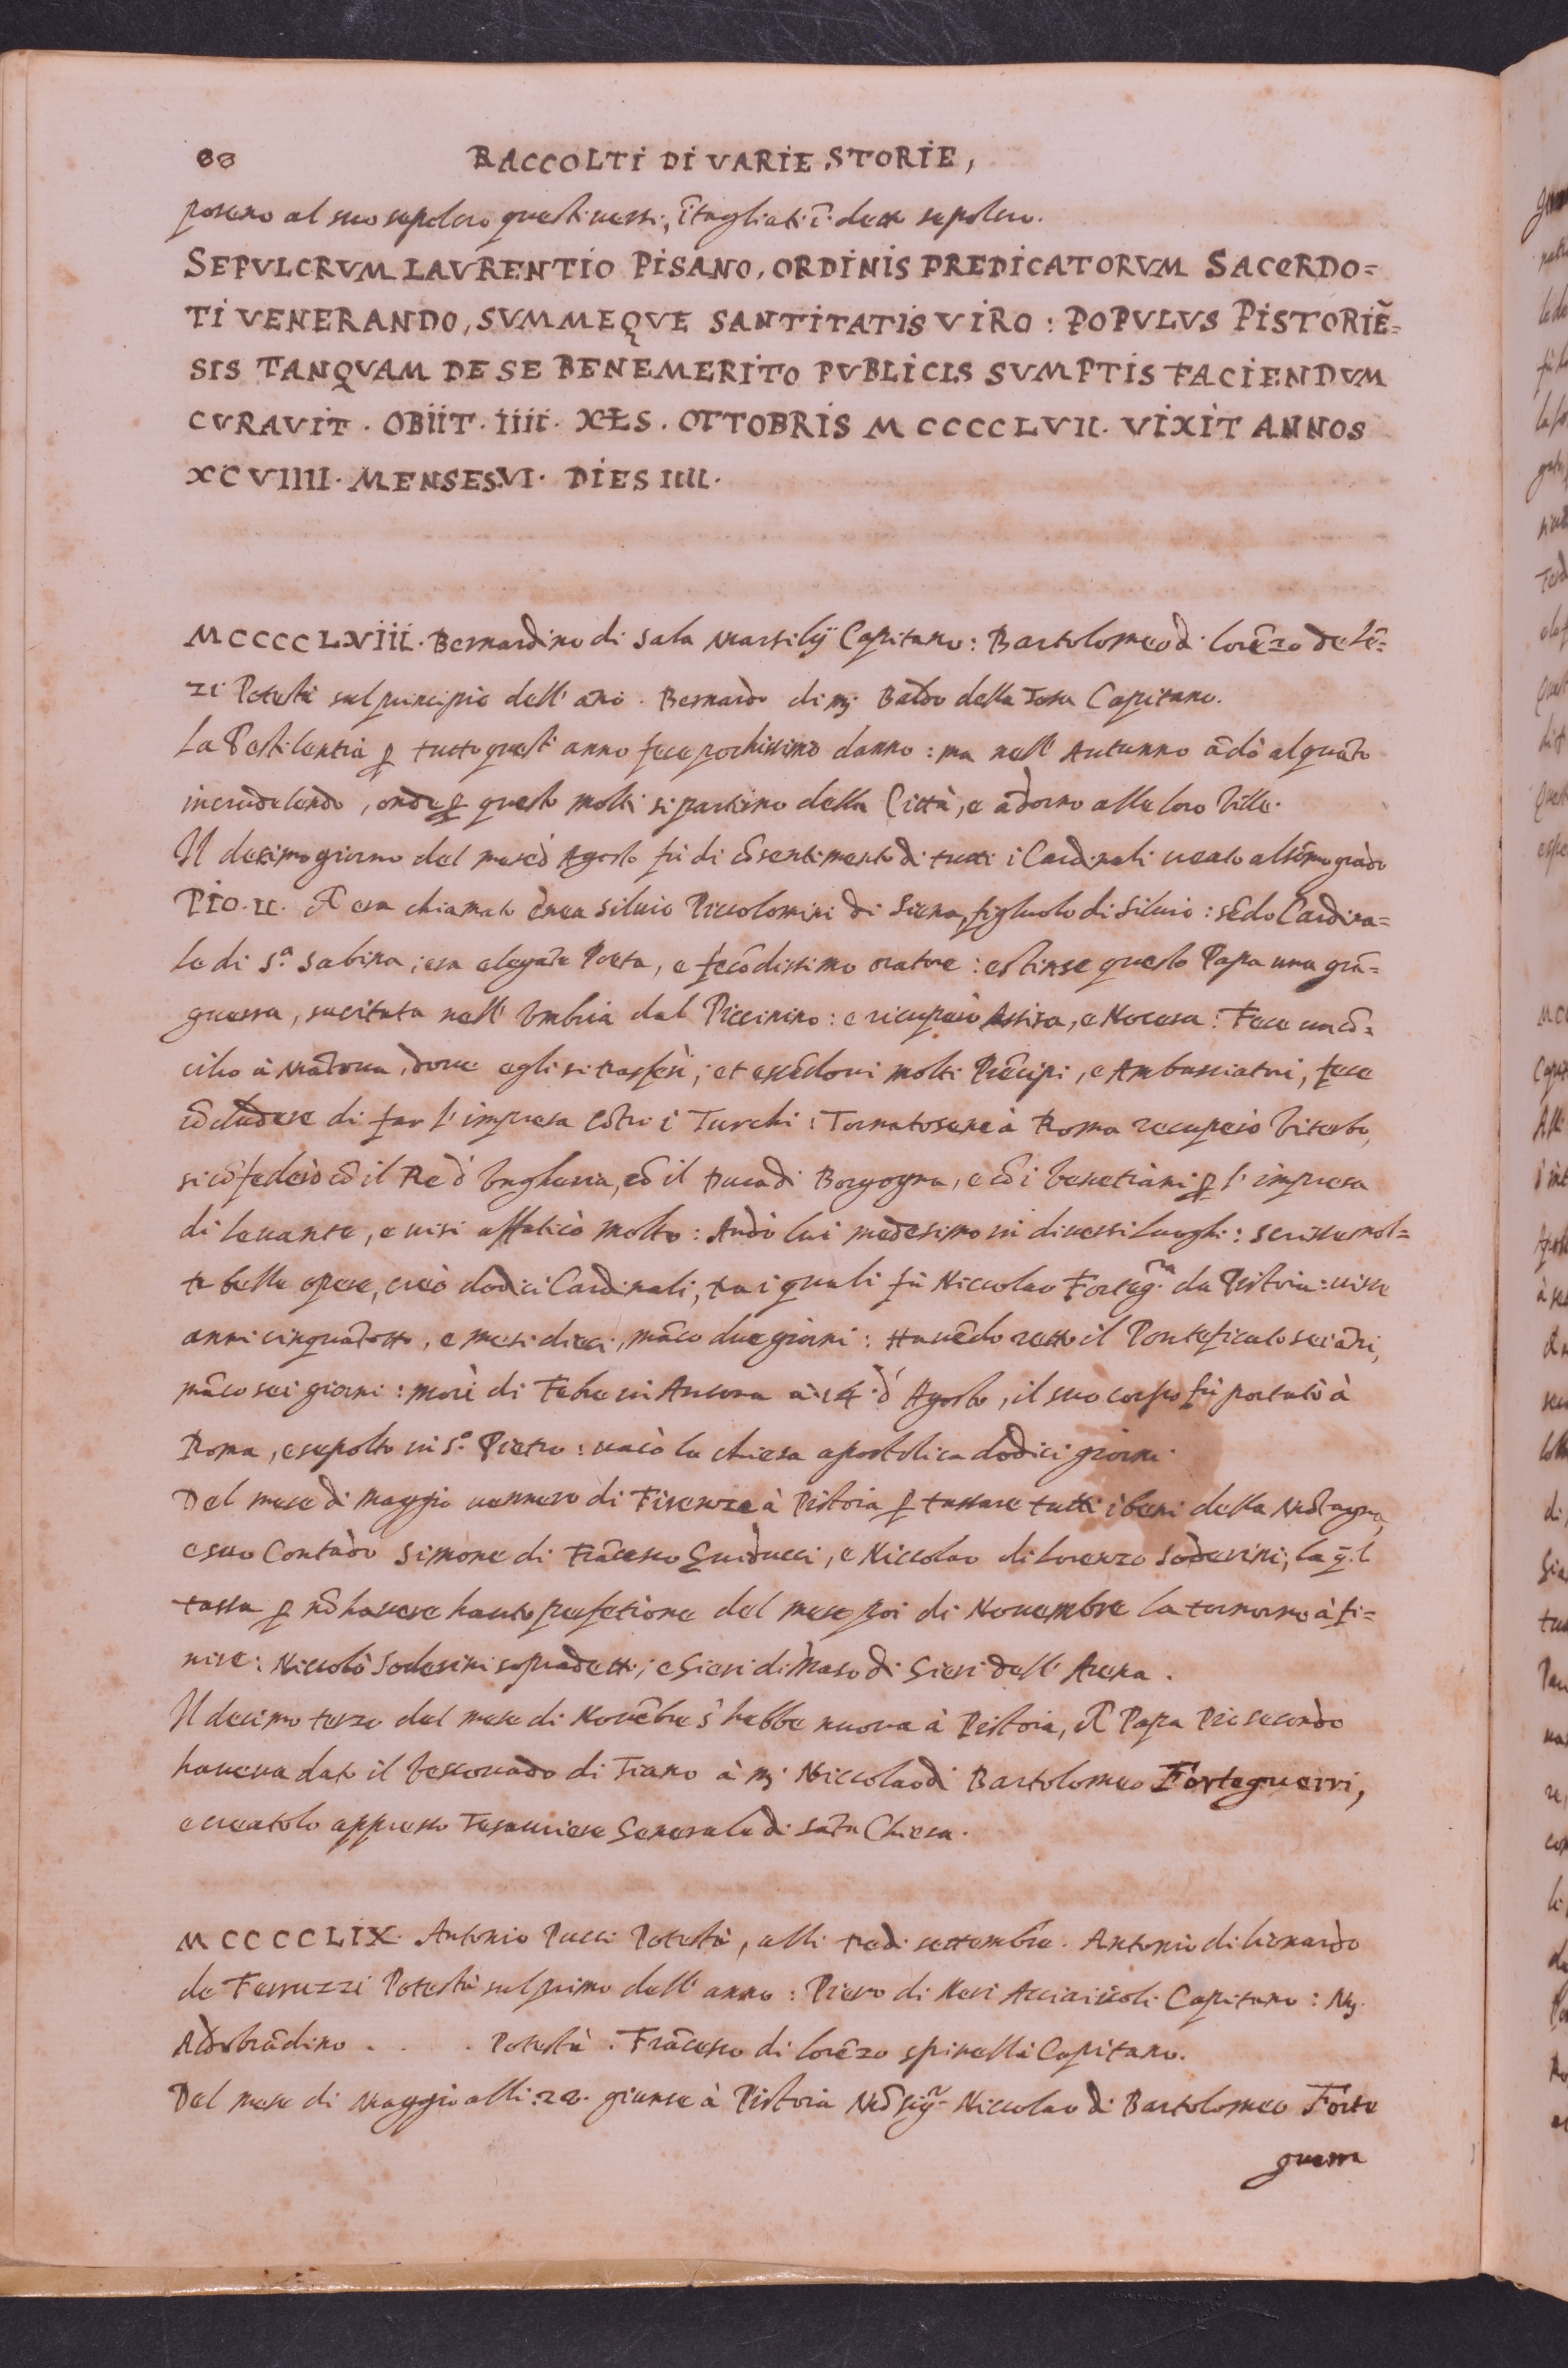 80 RACCOLTI DI VARIE STORIE,
posero al suo sepolcro questi uersi, ĩtagliati ĩ detto sepolcro.
SEPVLCRVM LAVRENTIO PISANO, ORDINIS PREDICATORVM SACERDO=
TI VENERANDO, SVMMEQVE SANTITATIS VIRO : POPVLVS PISTORIẼ=
SIS TANQVAM DE SE BENEMERITO PVBLICIS SVMPTIS FACIENDVM
CVRAVIT . OBIIT . IIII . KLS . OTTOBRIS M CCCC LVII . VIXIT ANNOS
XCVIIII . MENSES VI . DIES IIII .
MCCCCLVIII . Bernardino di Sala Marsilij Capitano : Bartolomeo di Lorẽzo de Lẽ=
zi Potestà sul principio dell' año . Bernardo di mj Baldo della Tosa Capitano.
La Pestilentia ꝑ tutto questi anno fece pochissimo danno : ma nell' Autunno ãdò alquãto
incrudelendo, onde ꝑ questo molti si partirno della Città, e ãdorno alle loro Ville.
Il decimo giorno del mese d' Agosto fù di cõsentimento di tutti i Cardinali creato al sõmo grado
PIO . II . era chiamato Enea Siluio Piccolomini di Siena, figluolo di Siluio : sẽdo Cardina=
le di S.ª Sabina ; era elegãte Poeta, e fecõdissimo oratore : estinse questo Papa una grã=
guerra, sucitata nell' Vmbria dal Piccinino : e ricuperò Assisa, e Nocera : Fece un cõ=
cilio à Mãtoua, doue egli si trasferì ; et essẽdoui molti Prẽcipi, e Ambasciatori, fece
cõcludere di far l' impresa cõtro i Turchi : Tornatosene à Roma recuperò Viterbo,
si cõfederò cõ il Re d' Vngheria, cõ il Duca di Borgogna, e cõ i Venetiani ꝑ l' impresa
di leuante, e uisi affaticò molto : Andò lui medesimo in diuersi luoghi : scrisse mol=
te belle opere, creò dodici Cardinali, tra i quali fù Niccolao Forteg.ra da Pistoia : uisse
anni cinquãtotto, e mesi dieci, mãco due giorni : Hauẽdo retto il Ponteficato sei ãni,
mãco sei giorni : morì di Febre in Ancona à 14 . d' Agosto, il suo corpo fù portato à
Roma, e sepolto in S.º Pietro : uacò la chiesa apostolica dodici giorni.
Del mese di Maggio uennero di Firenze à Pistoia ꝑ tassare tutti i beni della Mõtagna,
e suo Contado Simone di Frãcesco Guiducci, e Niccolao di Lorenzo Soderini, la q̃.l
tassa ꝑ nõ hauere hauto perfetione del mese poi di Nouembre la tornorno à fi=
nire : Niccolò Soderini sopradetti ; e Gieri di Maso di Gieri dell' Arena .
Il decimo terzo del mese di Nouẽbre s' hebbe nuoua à Pistoia, Papa Pio secondo
haueua dato il Vescouado di Tiano à mj Niccolao di Bartolomeo Forteguerri,
e creatolo appresso Tesauriere Generale di Sãta Chiesa .
MCCCCLIX . Antonio Pucci Potestà, alli tre di settembre . Antonio di Lionardo
de Ferruzzi Potestà sul primo dell' anno : Piero di Neri Acciaiuoli Capitano : Mj.
Aldobrãdino . . . . Potestà . Frãcesco di Lorẽzo Spinelli Capitano.
Del mese di Maggio alli . 22 . giunse à Pistoia Mõsig.r Niccolao di Bartolomeo Forte
guerra